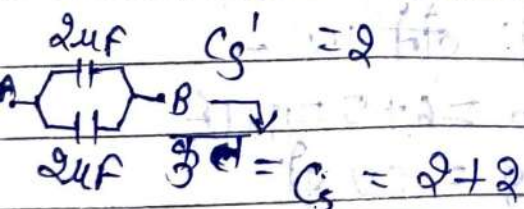 2μF Cs' = 2
A B
2μF कुल = Cs = 2+2